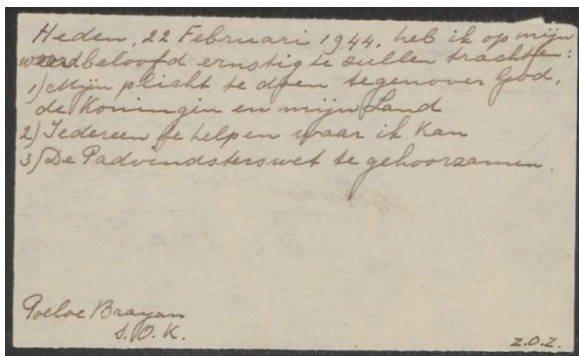 Heden, 22 Februari 1944, heb ik op mijn
woord beloofd ernstig te zullen trachten:
1) Mijn plicht te doen tegenover God,
de Koningin en mijn Land
2) Iedereen te helpen waar ik kan
3) De Padvindsterswet te gehoorzamen.
Poeloe Brayan
S.O.K.
z.o.z.